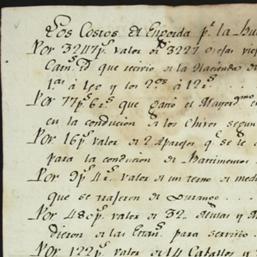 Los Costos de Engorda pa. la Ha
Por 3247ps. valor de 3227 obejas viejs
que recivio de la Hacienda
1as. á 1 y los 2os. á 12rs.
Por 77ps. 6rs. que ganó el Mayordmo
en la condución los Chivos segun
Por 16ps. valor de 2 Aparejos qe. se le
para la condución de Bastimentos
Por 9ps. 4rs. valor de un terno de medi
que se trajeron de Durango
Por 480ps. valor de 32 Mulas y M
dieron de las Estans. para servicio
Por 122ps. valor de 14 Caballos y